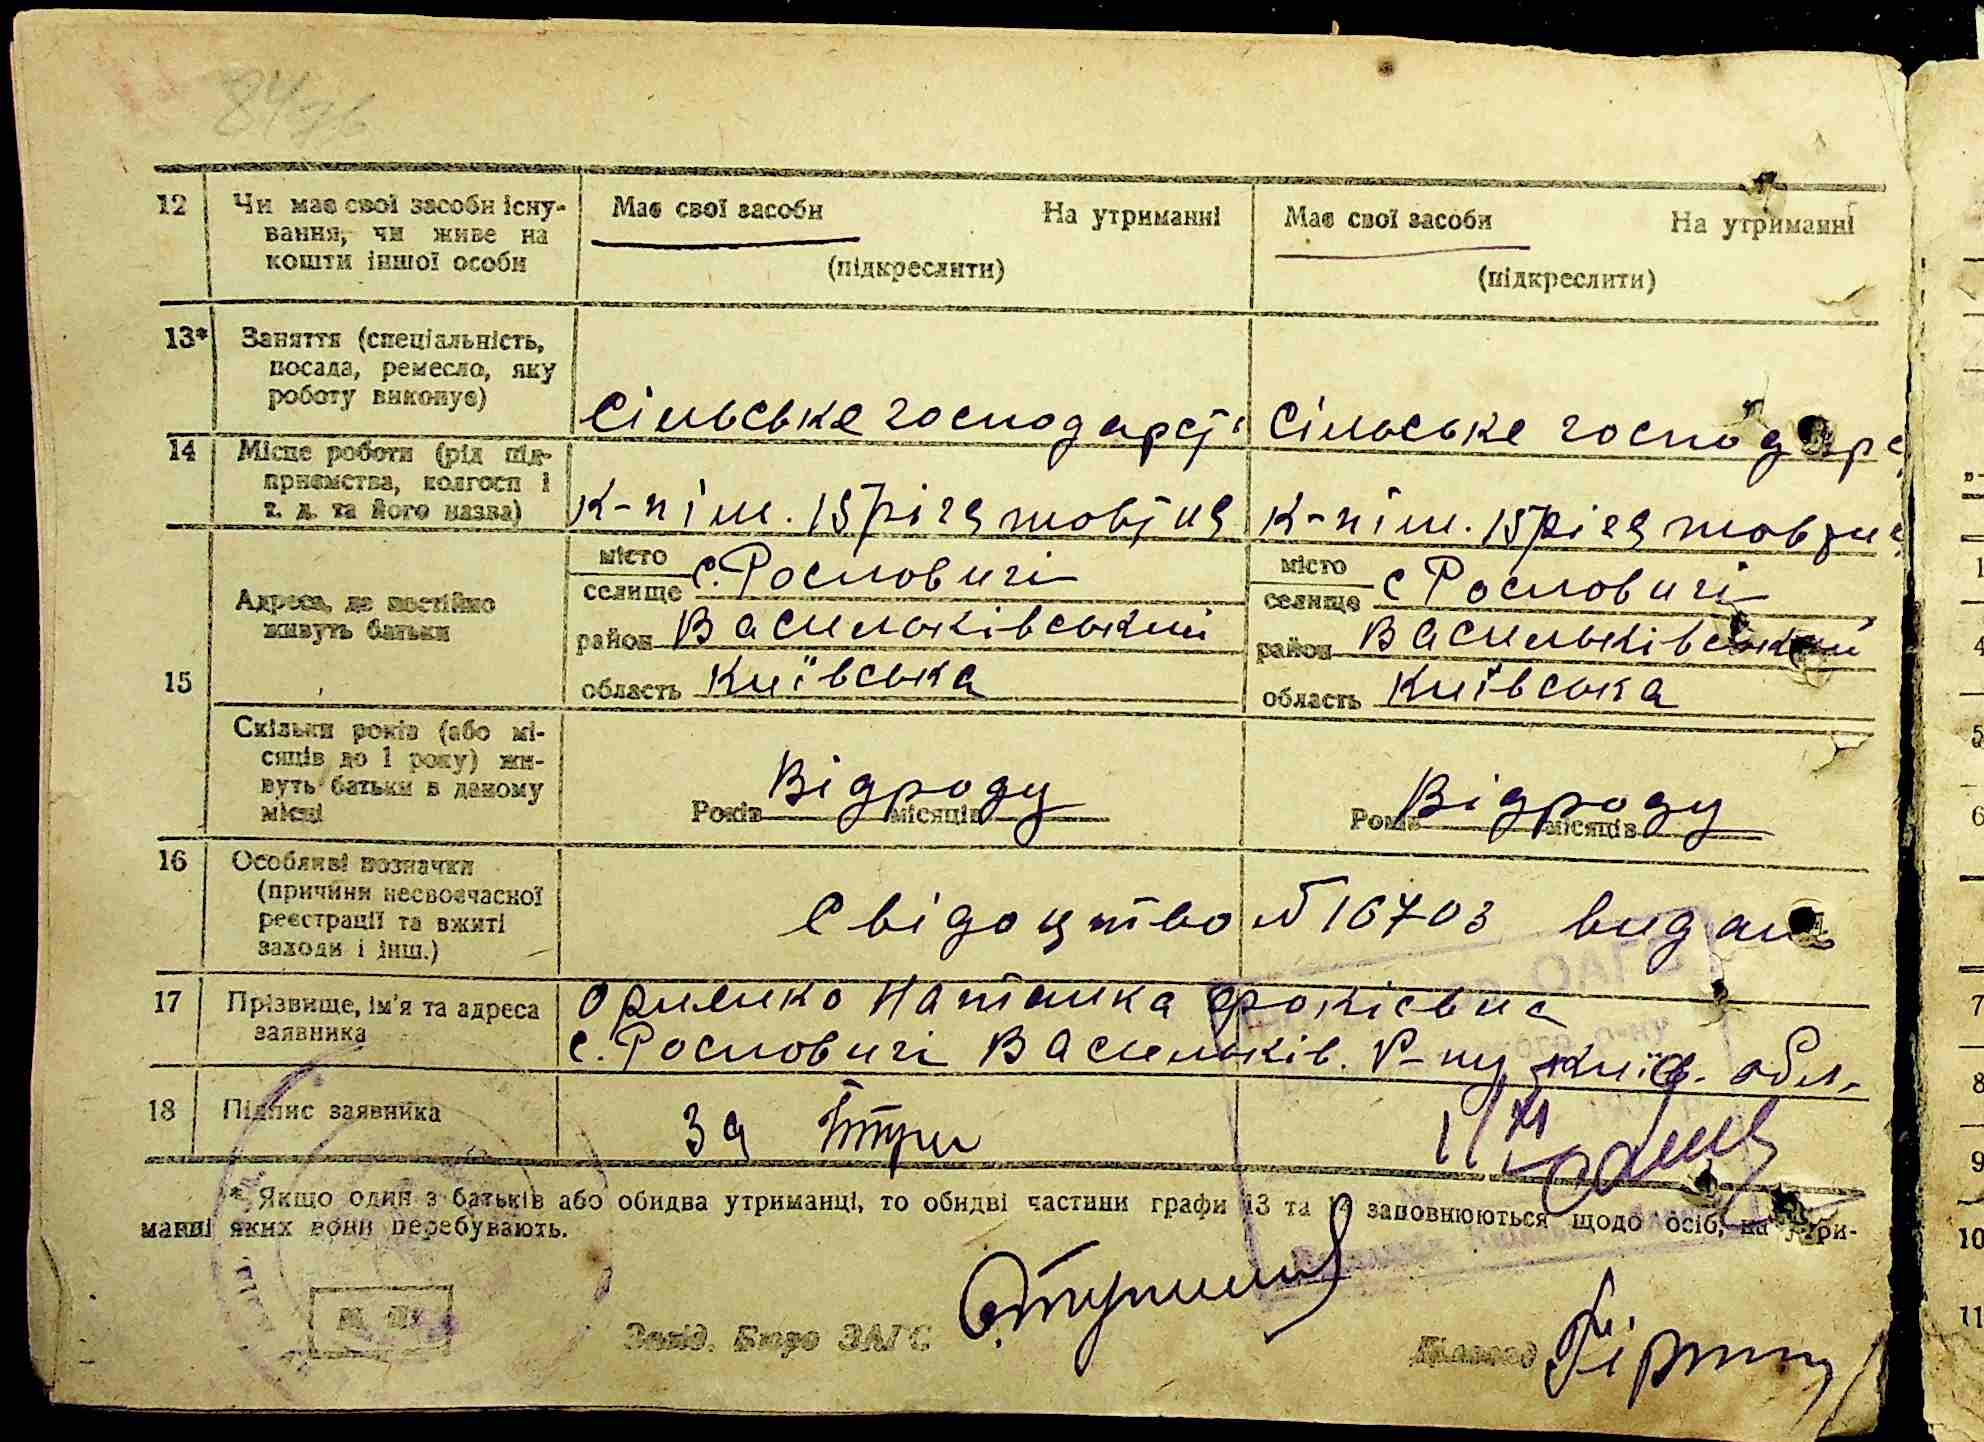 84зв
12 Чи має свої засоби існу- Має свої засоби На утриманні Має свої засоби На утриманні
вання, чи живе на
кошти іншої особи (підкреслити) (підкреслити)
13* Заняття (спеціальність,
посада, ремесло, яку
роботу виконує) Сільське господарст Сільське господарс
14 Місце роботи (рід під-
приємства, колгосп і
т. д. та його назва) к-п ім. 15 річя жовтня к-п ім. 15 річя жовтня
15 Адреса, де постійно
живуть батьки
місто
селище с. Рословичі
район Васильківський
область Київська
місто
селище с Рословичі
район Васильківський
область Київська
Скільки років (або мі-
сяців до 1 року) жи-
вуть батьки в даному
місці Років Відроду місяців Років Відроду місяців
16 Особливі позначки
(причини несвоєчасної
реєстрації та вжиті
заходи і інш.) Свідоцтво № 16703 видано
17 Прізвище, ім'я та адреса
заявника Наталка Фокієвна
с. Рословичі Васильків. Р-ну Київ. обл.
18 Підпис заявника За
* Якщо один з батьків або обидва утриманці, то обидві частини графи 13 та 14 заповнюються щодо осіб, на утри-
манні яких вони перебувають.
М. П.
Завід. Бюро ЗАГС
Діловод